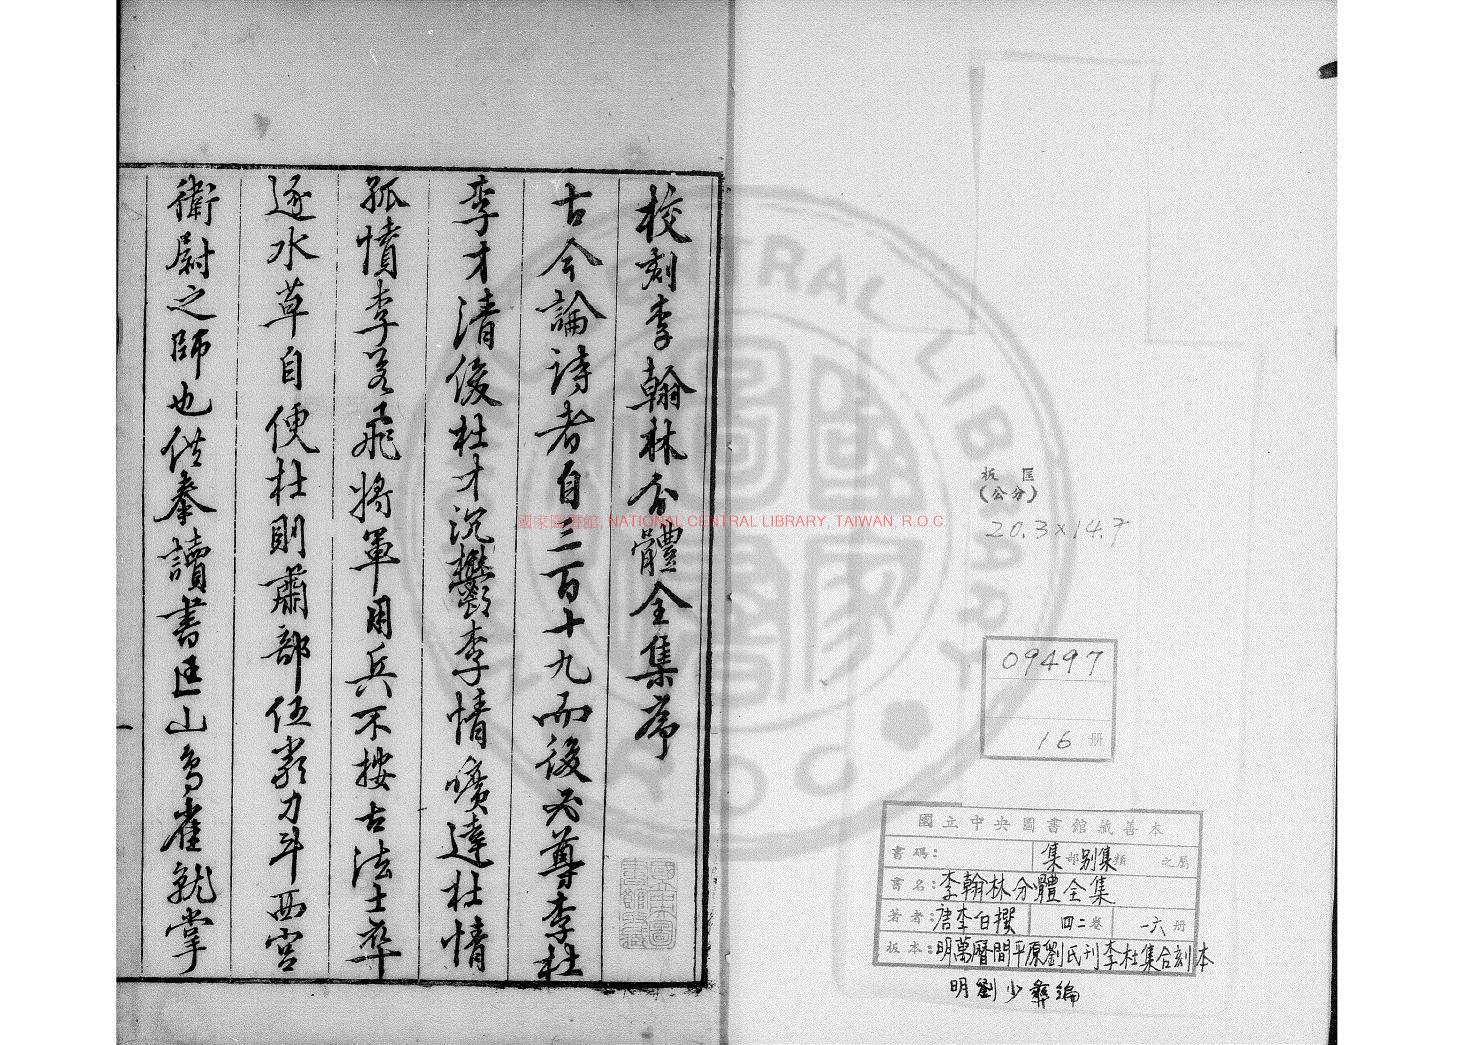 校刻李翰林分體全集序
古今論詩者自三百十九而後必尊李杜
李才清俊杜才沉鬱李情曠達杜情
孤憤李若飛將軍用兵不按古法士卒
逐水草自便杜則肅部伍嚴刁斗西宮
衛尉之師也供奉讀書匡山鳥雀就掌
國家圖書館, NATIONAL CENTRAL LIBRARY, TAIWAN, R.O.C.
板匡
(公分)
20.3×14.7
09497
16 册
國立中央圖書館藏善本
書碼: 集部別集類 之屬
書名:李翰林分體全集
著者:唐李白撰 四二卷 一六册
板本:明萬曆間平原劉氏刊李杜集合刻本
明劉少彝編